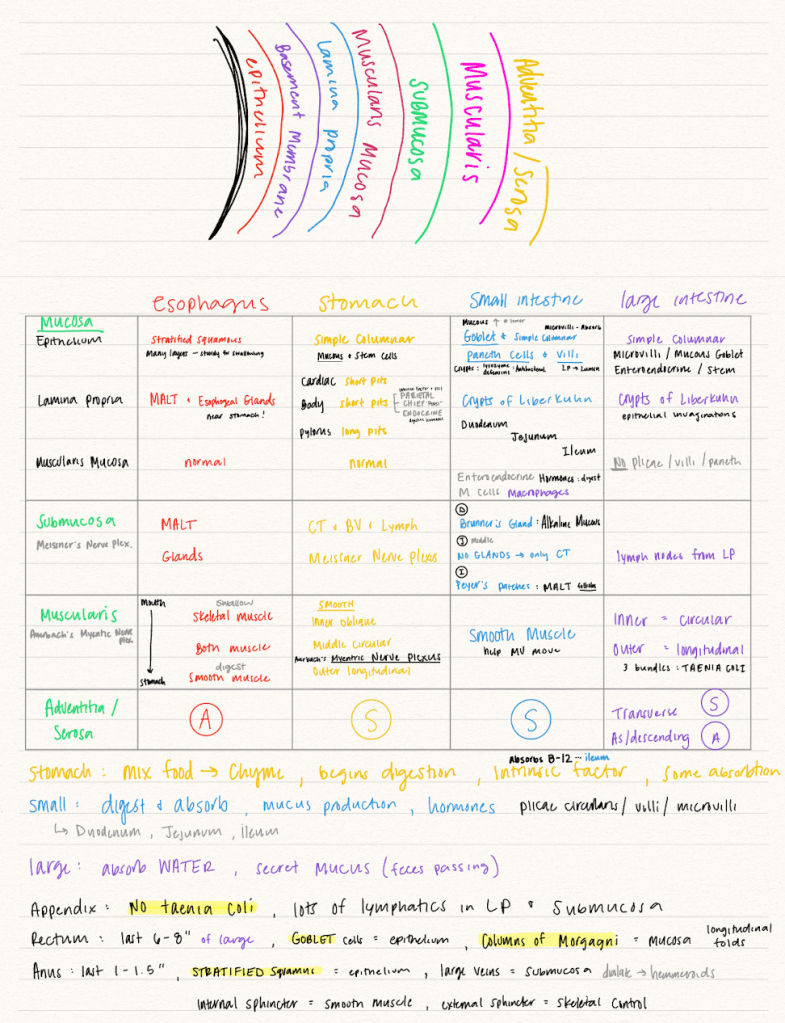 epithelium
Basement Membrane
Lamina Propria
Muscularis Mucosa
Submucosa
Muscularis
Adventitia / Serosa
Esophagus Stomach Small intestine large intestine
Mucosa
Epithelium
Stratified Squamous
Many layers - sturdy for swallowing
Simple Columnar
Mucous + Stem cells
Mucous
Microvilli - Absorb
Goblet + Simple Columnar
Paneth Cells + Villi
LP → Lumen
Simple Columnar
Microvilli / Mucous Goblet
Enteroendocrine / Stem
Lamina Propria
MALT + Esophageal Glands
near stomach!
Cardiac short pits
Body short pits
PARIETAL
CHIEF
ENDOCRINE
pylorus long pits
Crypts of Liberkuhn
Duodenum
Jejunum
Ileum
Crypts of Liberkuhn
epithelial invaginations
Muscularis Mucosa
normal
normal
Enteroendocrine Hormones: digest
M cells Macrophages
NO plicae / villi / paneth
Submucosa
Meissner's Nerve Plex.
MALT
Glands
CT + BV + Lymph
Meissner Nerve Plexus
D
Brunner's Gland: Alkaline Mucous
J middle
NO GLANDS → only CT
I
Peyer's patches: MALT follicles
lymph nodes from LP
Muscularis
Auerbach's Myentric Nerve plex
Mouth
stomach
Swallow
Skeletal muscle
Both muscle
digest
Smooth muscle
SMOOTH
Inner oblique
Middle circular
Auerbach's Myentric Nerve Plexus
Outer longitudinal
Smooth Muscle
help MV move
Inner = circular
Outer = longitudinal
3 bundles: TAENIA COLI
Adventitia /
Serosa
A
S
S
Transverse S
As/descending A
absorbs B-12 … ileum
Stomach: Mix food → Chyme, begins digestion, Intrinsic factor, some absorbtion
small: digest & absorb, mucus production, hormones plicae circularis / villi / microvilli
↳ Duodenum, Jejunum, ileum
large: absorb WATER, secret Mucus (feces passing)
Appendix: No taenia coli, lots of lymphatics in LP + Submucosa
Rectum: last 6-8" of large, GOBLET cells = epithelium, Columns of Morgagni = mucosa longitudinal folds
Anus: last 1-1.5", STRATIFIED Squamus = epithelium, large veins = submucosa dialate → hemmeroids
internal sphincter = smooth muscle, external sphincter = skeletal control